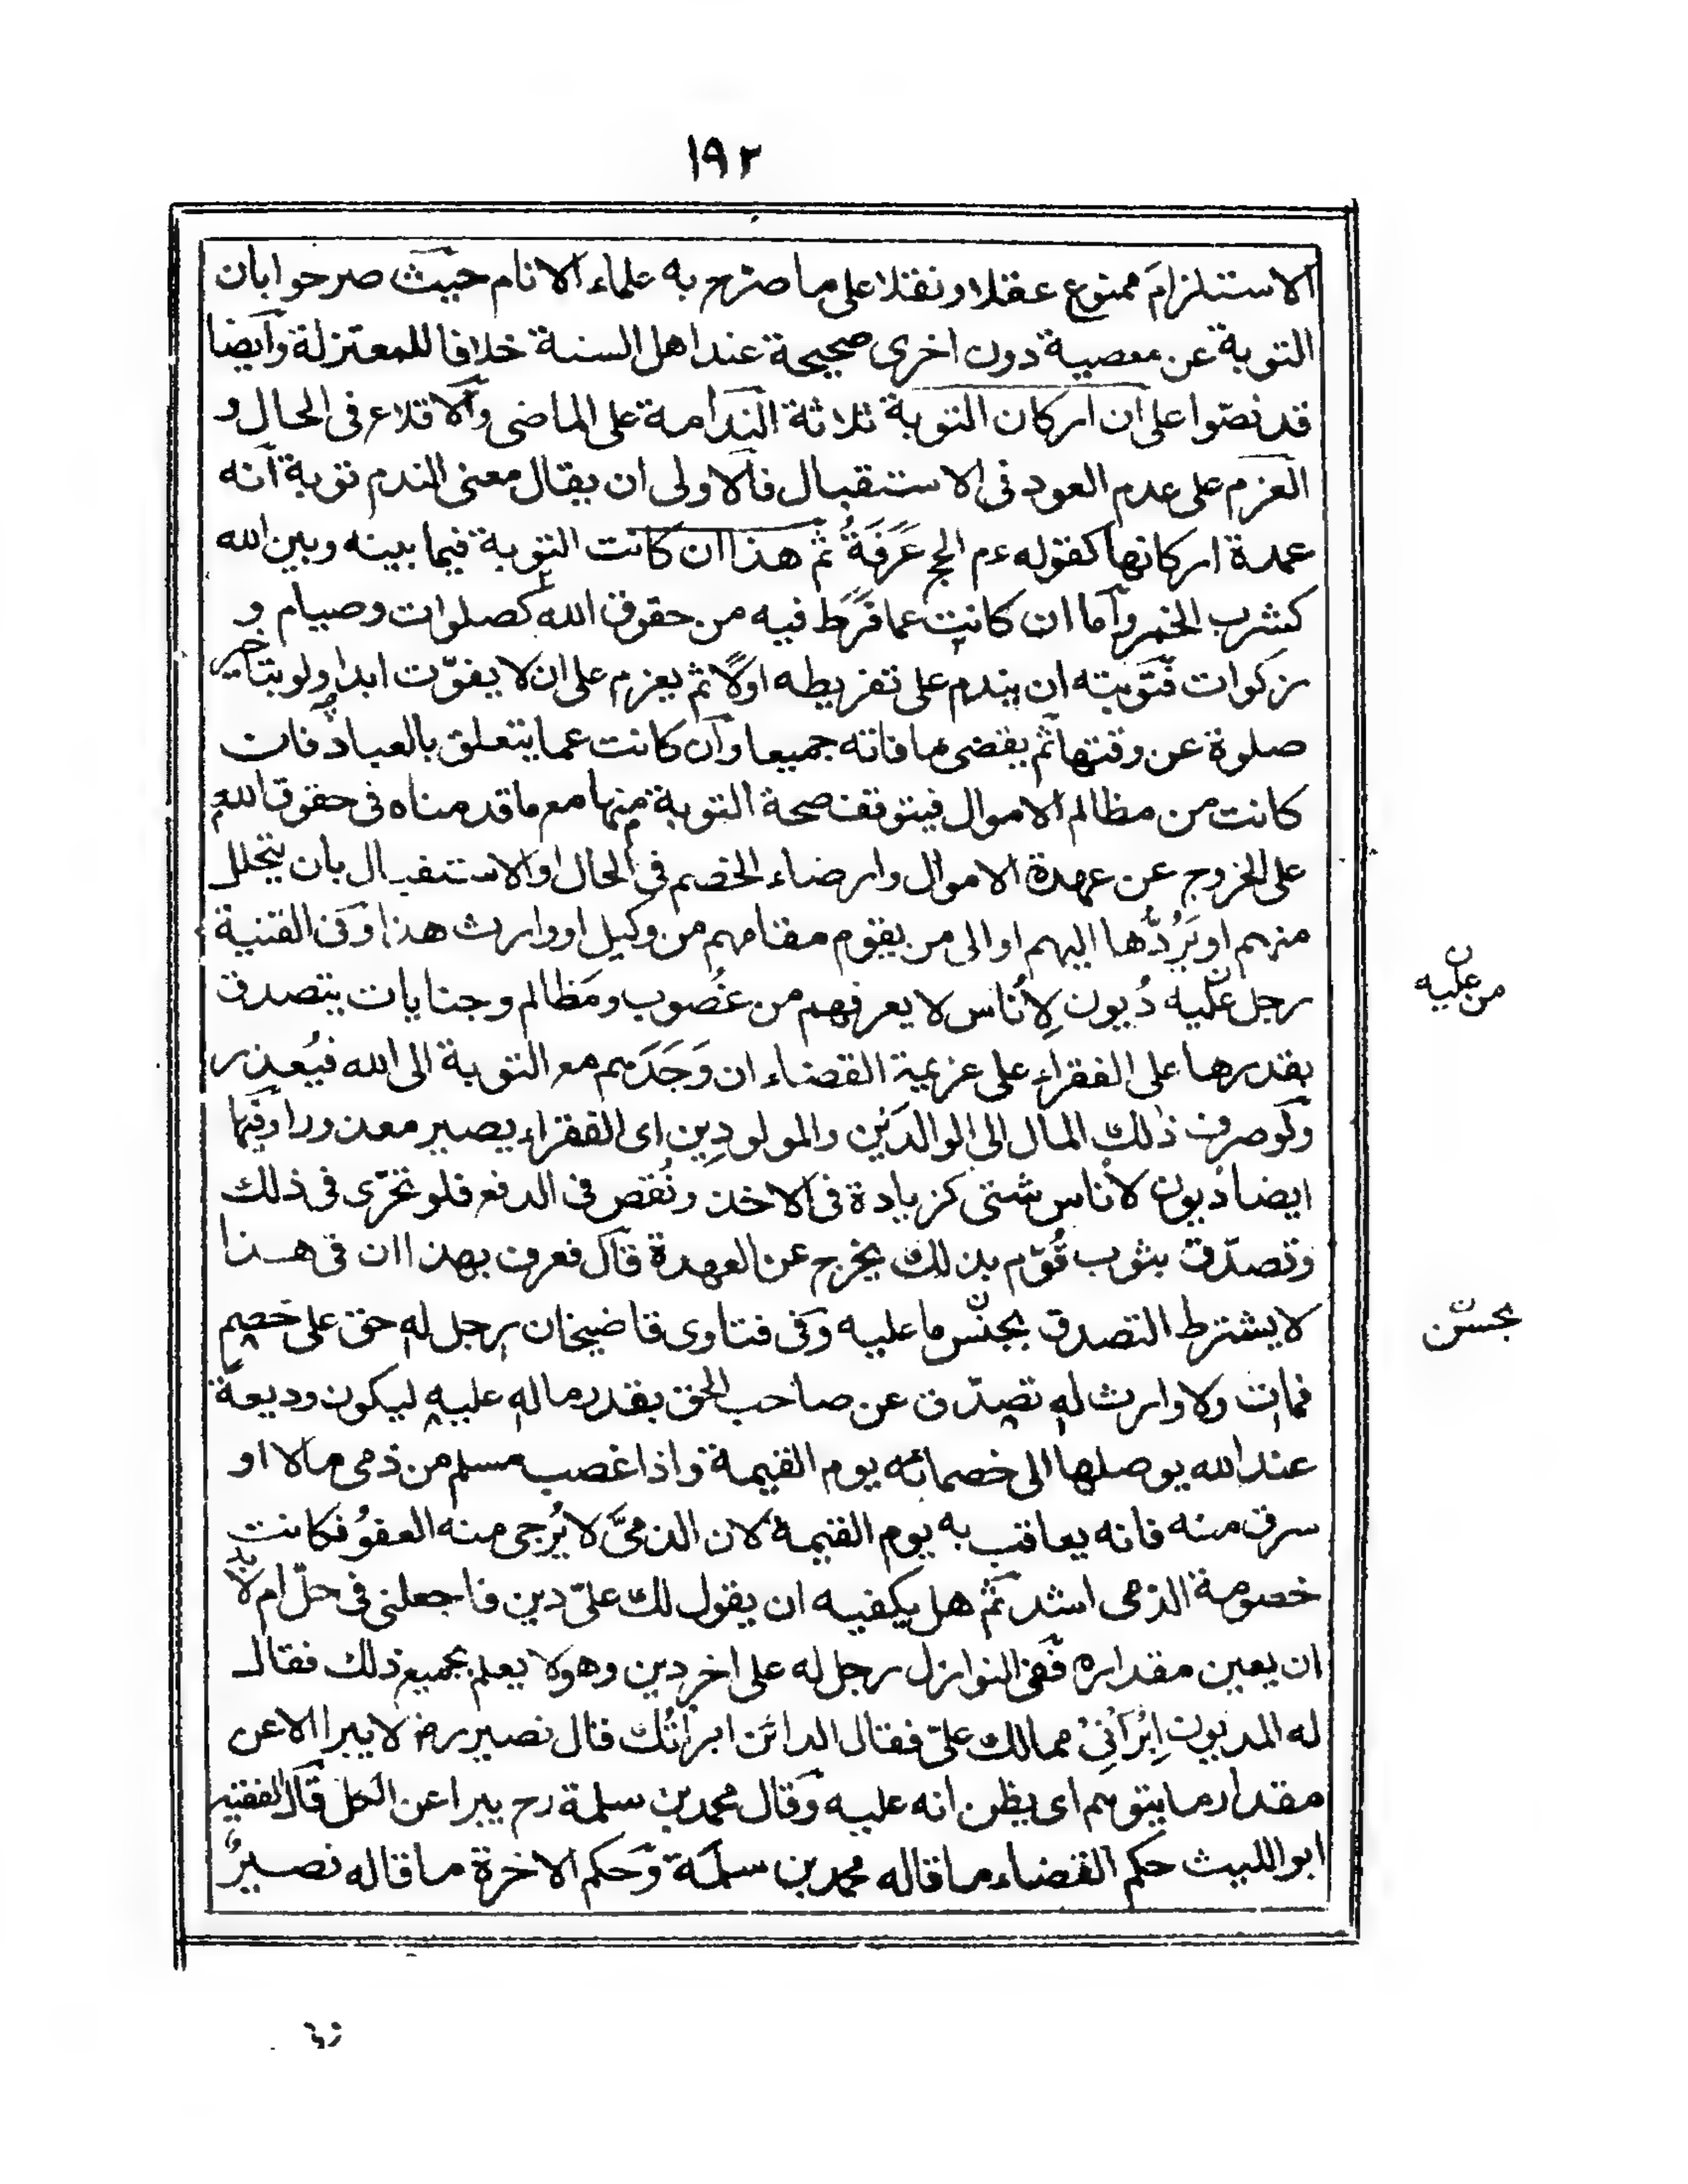 ١٩٢
الاستلزام ممنوع عقلا ونقلا على ما صرّح به علماء الانام حيث صرحوا بان
التوبة عن معصية دون اخرى صحيحة عند اهل السنة خلافا للمعتزلة وايضا
قد نصّوا على ان اركان التوبة ثلاثة الندامة على الماضى والاقلاع فى الحال و
العزم على عدم العود فى الاستقبال فالاولى ان يقال معنى الندم توبة انه
عمدة اركانها كقوله عم الحج عَرَفَةُ ثم هذا ان كانت التوبة فيما بينه وبين الله
كشرب الخمر واما ان كانت عما فَرَّط فيه من حقوق الله كصلوات وصيام و
زكوات فتوبته ان يندم على تفريطه اولًا ثم يعزم على ان لا يفوّت ابدا ولو بتاخير
صلوة عن وقتها ثم يقضى ما فاته جميعا وان كانت عما يتعلق بالعباد فان
كانت من مظالم الاموال فيتوقف صحة التوبة منها مع ما قدمناه فى حقوق الله
على الخروج عن عهدة الاموال وارضاء الخصم فى الحال او الاستقبال بان يتحلل
منهم او يَرُدَّها اليهم او الى من يقوم مقامهم من وكيل او وارث هذا وفى القنية
رجل عليه دُيون لِأُناس لا يعرفهم من غصُوب ومَظالم وجنايات يتصدق
من عليه
بقدرها على الفقراء على عزيمة القضاء ان وَجَدَهم مع التوبة الى الله فيُعذر
ولو صرف ذلك المال الى الوالدَين والمولودِين اى الفقراء يصير معذورا وفيها
ايضا ديون لأناس شتى كزيادة فى الاخذ ونُقص فى الدفع فلو تحرّى فى ذلك
وتصدّق بثوب قُوّم بذلك يخرج عن العهدة قال فعرف بهذا ان فى هذا
لا يشترط التصدق بجنس ما عليه وفى فتاوى قاضيخان رجل له حق على خصم
فمات ولا وارث له تصدّق عن صاحب الحق بقدر ماله عليه ليكون وديعة
عند الله يوصلها الى خصمائه يوم القيمة واذا غصب مسلم من ذمى مالا او
سرق منه فانه يعاقب به يوم القيمة لان الذمىَّ لا يُرجى منه العفوُ فكانت
خصومة الذمى اشد ثم هل يكفيه ان يقول لك علىّ دين فاجعلنى فى حلّ ام لا بد
ان يعين مقداره ففى النوازل رجل له على اخر دين وهو لا يعلم بجميع ذلك فقال
له المديون اِبْرَأنِىْ ممالك علىّ فقال الدائن ابرأتُك قال نصير رض لا يبرا الا عن
مقدار ما يتوهم اى يظن انه عليه وقال محمد بن سلمة رح يبرا عن الكل قال الفقيه
ابو الليث حكم القضاء ما قاله محمد بن سلمة وحكم الاخرة ما قاله نصيرٌ